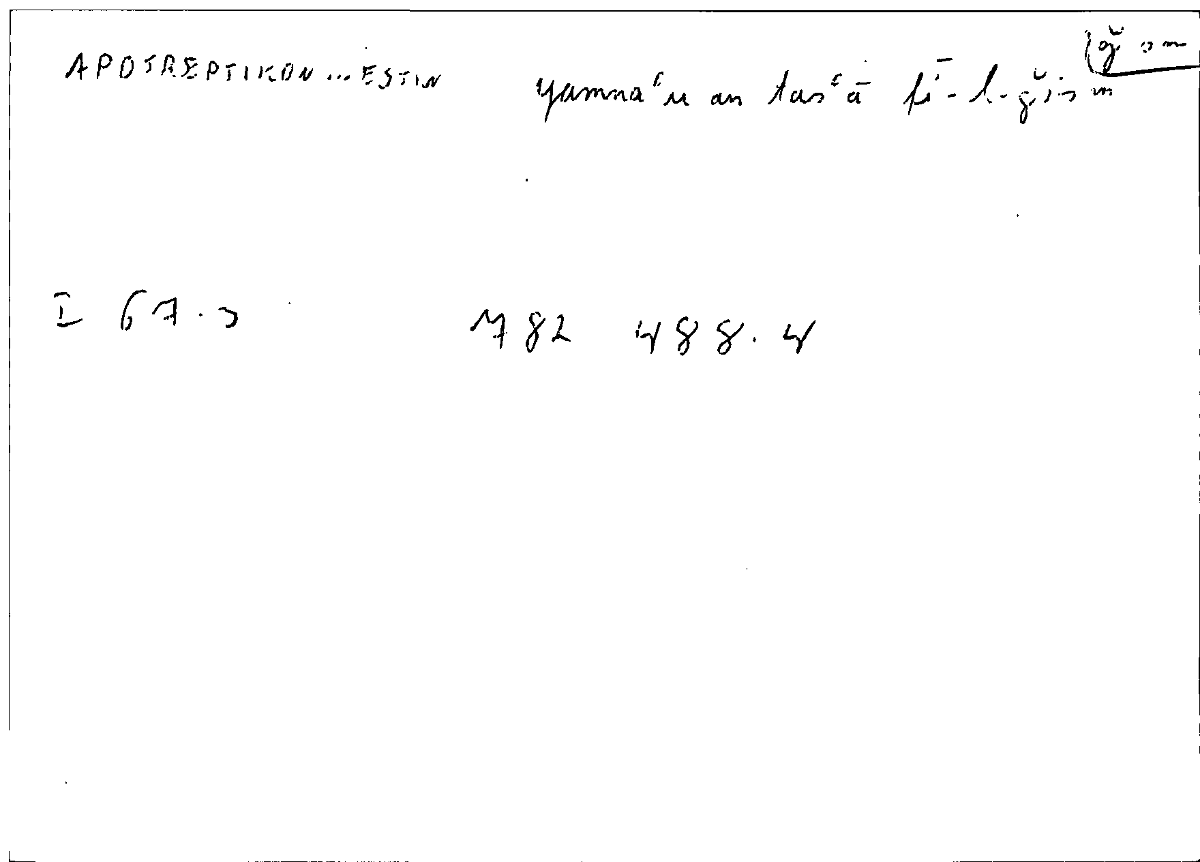 (ǧ sm
APOTREPTIKON ... ESTIN yamnaʿu an tasʿā fī-l-ǧism
I 67.3 782 488.4